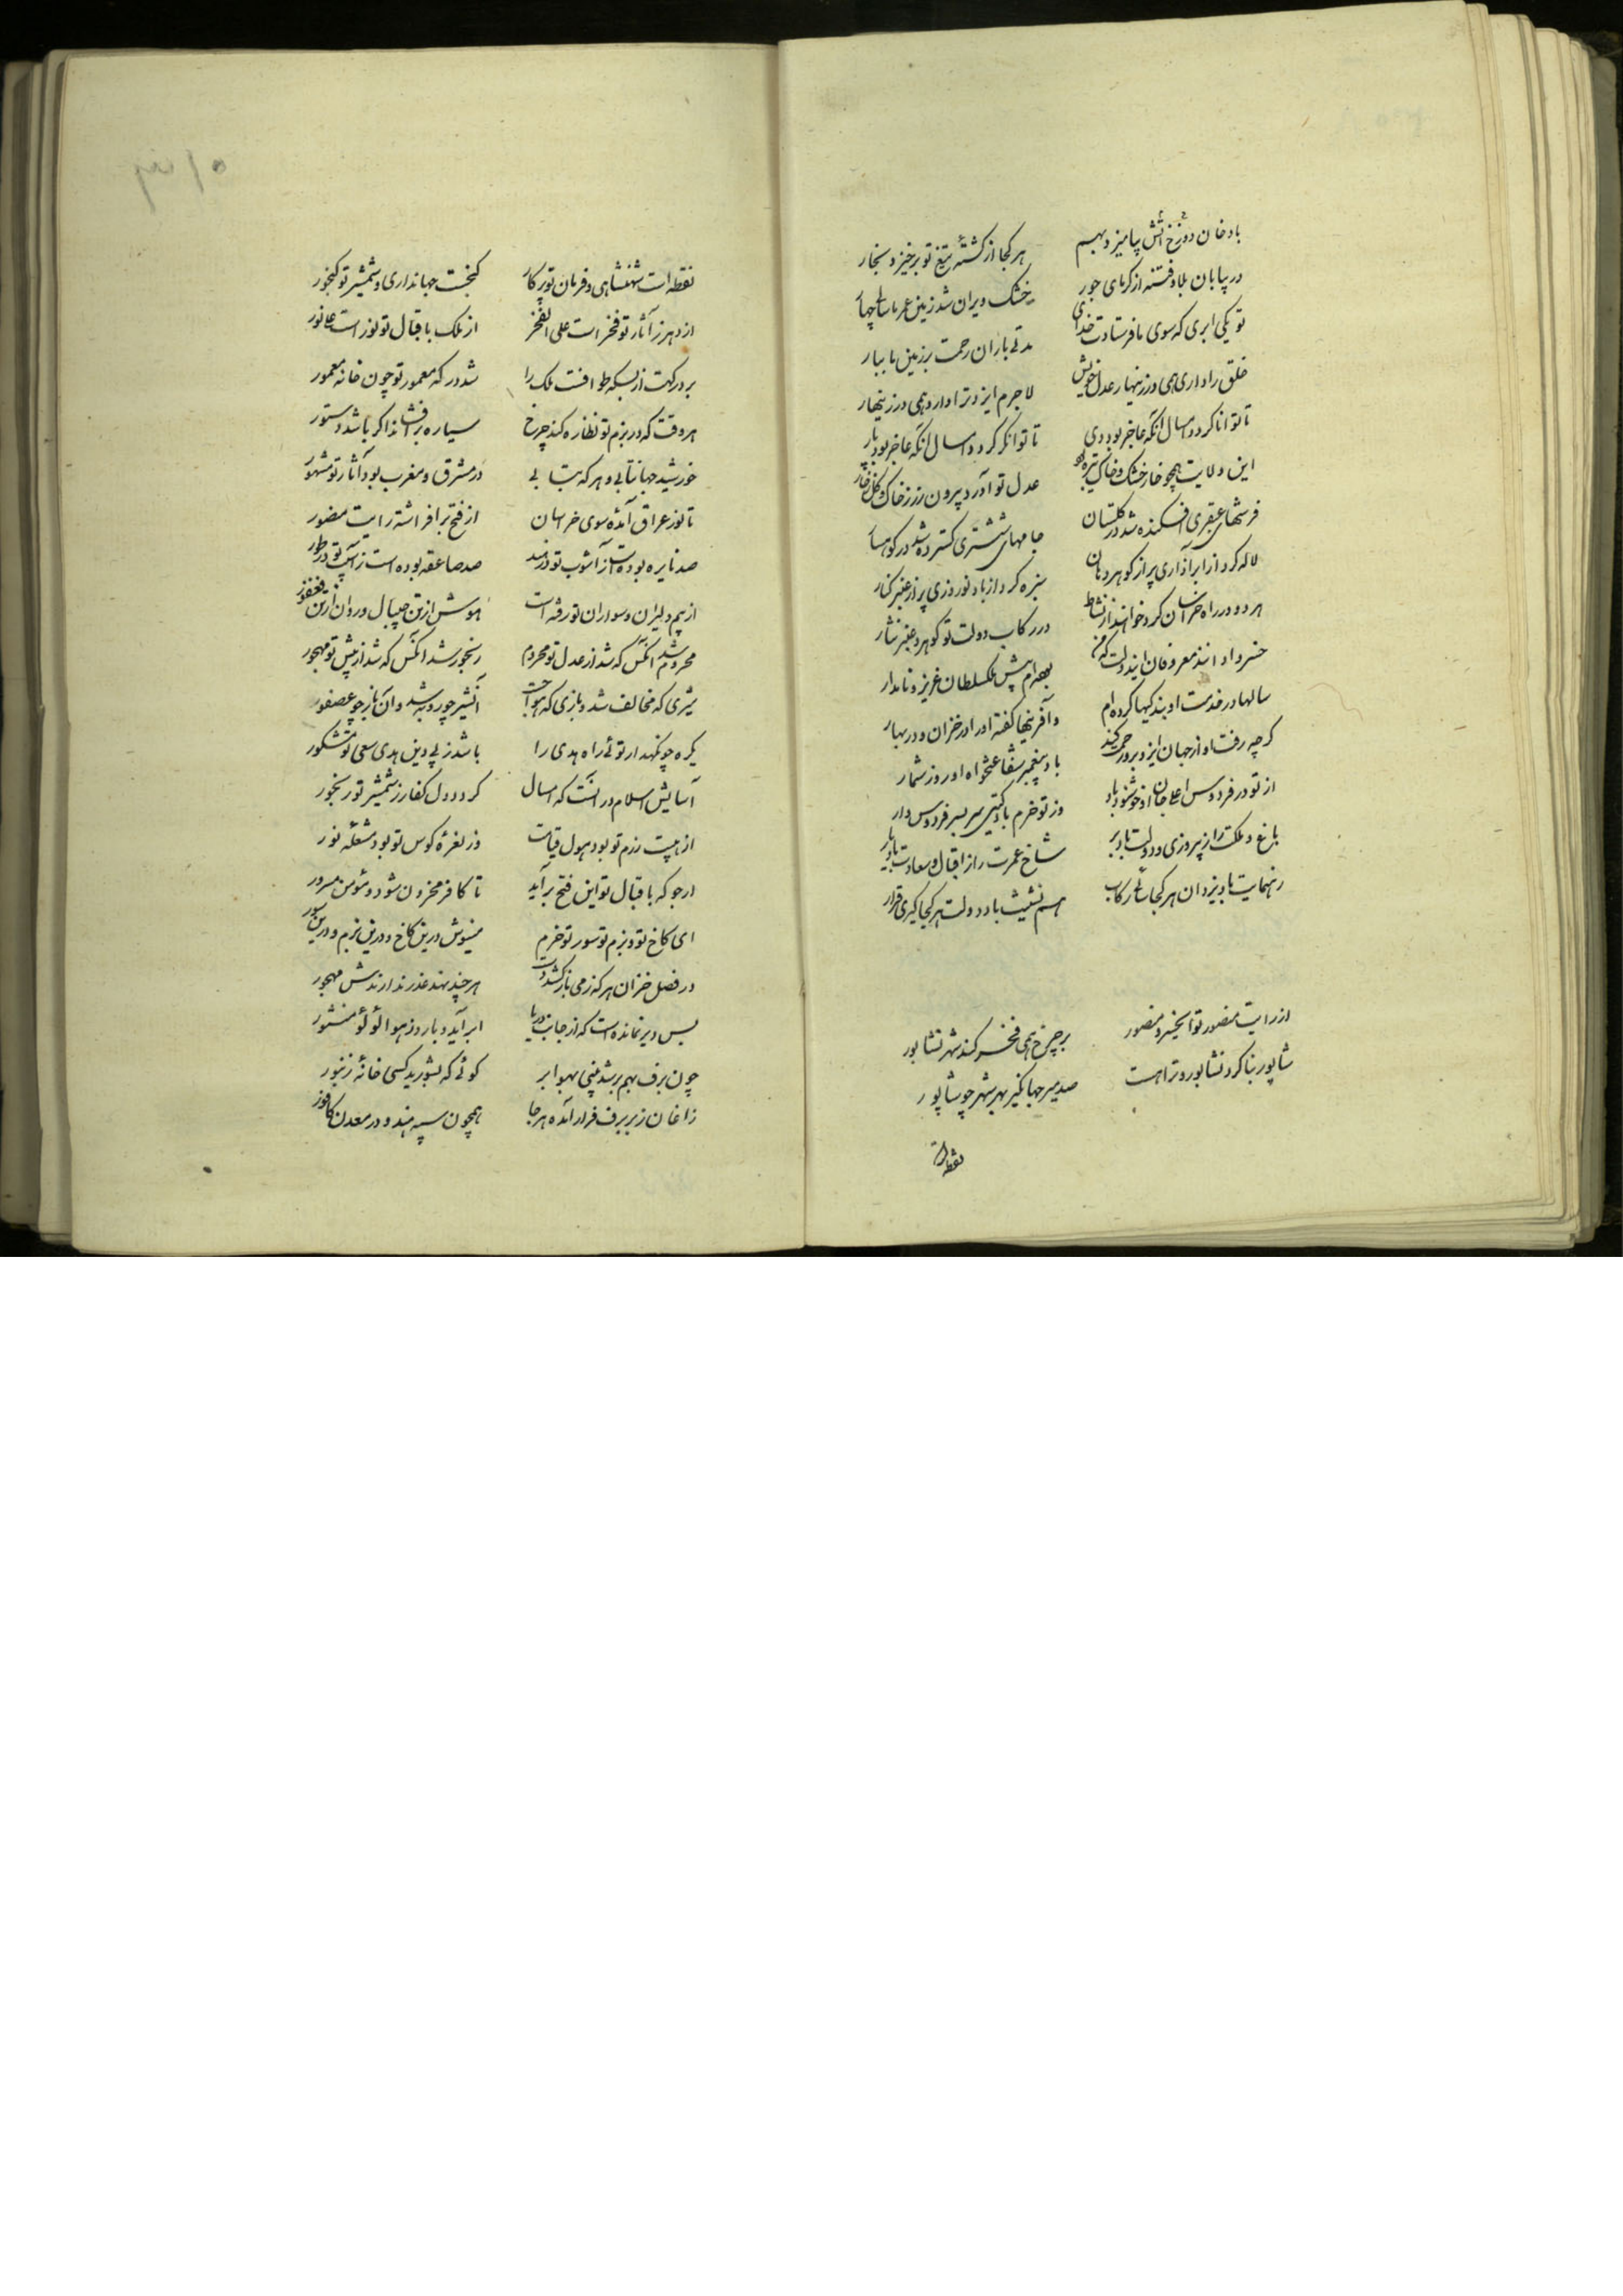 بادخان دوزخ آتش بیامیزد بهم هر کجا از کشتهٔ تیغ تو برخیزد بخار
در بیابان بلا و فتنه از گرمای جور خشک و ویران شد زمین عمرما سالی چهار
تو یکی ابری که سوی ما فرستادت خدای مدتی باران رحمت بر زمین ما ببار
خلق را داری همی در زینهار عدل خویش لاجرم ایزد ترا دارد همی در زینهار
تا توانا گردد امسال آنکه عاجز بود دی تا توانگر گردد امسال آنکه عاجز بود پار
این ولایت همچو خار خشک و خاک تیره بود عدل تو آورد بیرون زر ز خاک و گل ز خار
فرشهای عبقری افکنده شد در گلستان جامهای ششتری گسترده شد در کوهسار
لاله کرد از ابر آذاری پر از گوهر دهان سبزه کرد از باد نوروزی پر از عنبر کنار
هر دو در راه خراسان کرد خواهند از نشاط در رکاب دولت تو گوهر و عنبر نثار
خسروا دانند معروفان این دولت که من بوده‌ام پیش ملکسلطان عزیز و نامدار
سالها در خدمت او بندگیها کرده‌ام و آفرینها گفته او را در خزان و در بهار
گرچه رفت او از جهان ایزد برو رحمت کند باد پیغمبر شفاعتخواه او روز شمار
از تو در فردوس اعلا جان او خوشنود باد وز تو خرم باد گیتی سربسر فردوس وار
باغ و ملکت را ز پیروزی و دولت باد بر شاخ عمرت را ز اقبال و سعادت باد بار
رهنمایت باد یزدان هر کجا سائی رکاب هم نشینت باد دولت هر کجا گیری قرار
از رایت منصور تو ای خسرو منصور بر چرخ همی فخر کند شهر نشابور
شاپور بنا کرد نشابور و ترا هست صد میر جهانگیر بهر شهر چو شاپور
نقطه است
۳۱۵
نقطه است شهنشاهی و فرمان تو پرگار گنجست جهانداری و شمشیر تو گنجور
از دهر ز آثار تو فخر است علی الفخر از ملک باقبال تو نور است علی نور
بر درگهت از بسکه طوافست ملک را شد درگه معمور تو چون خانهٔ معمور
هر وقت که در بزم تو نظاره کند چرخ سیاره برافشاند اگر باشد دستور
خورشید جهانتابی و هر که بتابی در مشرق و مغرب بود آثار تو مشهور
تا تو ز عراق آمدهٔ سوی خراسان از فتح برافراشته رایت منصور
صد نایره بوده است ز آشوب تو در هند صد صاعقه بوده است ز آسیب تو در طور
از بیم دلیران و سواران تو رفته است هوش از تن جیپال و روان از تن فغفور
محروم شد آنکس که شد از عدل تو محروم رنجور شد آنکس که شد از پیش تو مهجور
شیری که مخالف شد و بازی که هوا جست آن شیر چو روبه شد و آن باز چو عصفور
یکره چو نگهدار توئی راه هدی را باشد ز پی دین هدی سعی تو مشکور
آسایش اسلام در آنست که امسال گردد دل کفار ز شمشیر تو رنجور
از هیبت رزم تو بود هول قیامت وز نعرهٔ کوس تو بود مشغلهٔ نور
ارجو که باقبال تو این فتح برآید تا کافر محزون شود و مؤمن مسرور
ای کاخ تو و بزم تو و سور تو خرم مینوش درین کاخ و درین بزم و درین سور
در فصل خزان هر که ز می باز کشد دست هر چند نهد عذر ندارندش مهجور
بس دیر نمانده است که از جانب دریا ابر آید و بارد ز هوا لؤلؤ منثور
چون برف بهم بر شد بینی بهوا بر گوئی که بشورید کسی خانهٔ زنبور
زاغان زبر برف فراز آمده هر جا همچون سپه هند و در معدن کافور